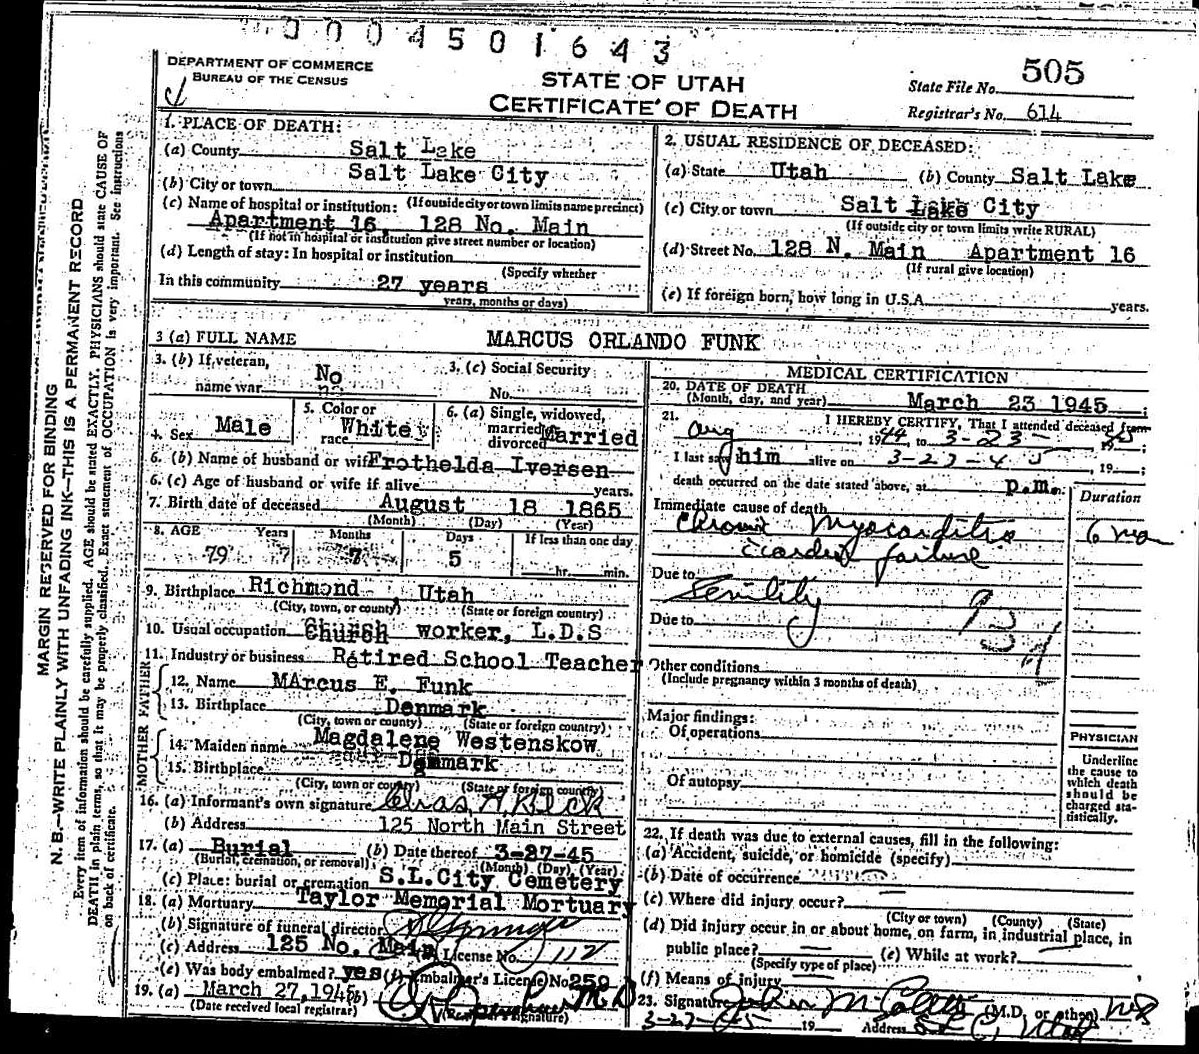 0004501643
DEPARTMENT OF COMMERCE
BUREAU OF THE CENSUS
STATE OF UTAH
CERTIFICATE OF DEATH
State File No. 505
Registrar's No. 614
MARGIN RESERVED FOR BINDING
N. B.—WRITE PLAINLY WITH UNFADING INK—THIS IS A PERMANENT RECORD
Every item of information should be carefully supplied. AGE should be stated EXACTLY. PHYSICIANS should state CAUSE OF
DEATH in plain terms, so that it may be properly classified. Exact statement of OCCUPATION is very important. See instructions
on back of certificate.
1. PLACE OF DEATH:
(a) County Salt Lake
(b) City or town Salt Lake City
(If outside city or town limits name precinct)
(c) Name of hospital or institution:
Apartment 16, 128 No. Main
(If not in hospital or institution give street number or location)
(d) Length of stay: In hospital or institution
(Specify whether
In this community 27 years
years, months or days)
2. USUAL RESIDENCE OF DECEASED:
(a) State Utah (b) County Salt Lake
(c) City or town Salt Lake City
(If outside city or town limits write RURAL)
(d) Street No. 128 N. Main Apartment 16
(If rural give location)
(e) If foreign born, how long in U.S.A. years.
3 (a) FULL NAME MARCUS ORLANDO FUNK
3. (b) If veteran, name war No
3. (c) Social Security No.
4. Sex Male
5. Color or race White
6. (a) Single, widowed, married, divorced Married
6. (b) Name of husband or wife Frothelda Iversen
6. (c) Age of husband or wife if alive years.
7. Birth date of deceased August 18 1865
(Month) (Day) (Year)
8. AGE Years Months Days If less than one day
79 7 5 hr. min.
9. Birthplace Richmond, Utah
(City, town, or county) (State or foreign country)
10. Usual occupation Church worker, L.D.S
11. Industry or business Retired School Teacher
FATHER
12. Name MArcus E. Funk
13. Birthplace Denmark
(City, town or county) (State or foreign country)
MOTHER
14. Maiden name Magdalene Westenskow
15. Birthplace Denmark
(City, town or county) (State or foreign country)
16. (a) Informant's own signature
(b) Address 125 North Main Street
17. (a) Burial (b) Date thereof 3-27-45
(Burial, cremation, or removal) (Month) (Day) (Year)
(c) Place: burial or cremation S.L.City Cemetery
18. (a) Mortuary Taylor Memorial Mortuary
(b) Signature of funeral director
(c) Address 125 No. Main (d) License No. 112
(e) Was body embalmed? yes (f) Embalmer's License No. 250
19. (a) March 27, 1945 (b) M.D.
(Date received local registrar) (Registrar's signature)
MEDICAL CERTIFICATION
20. DATE OF DEATH
(Month, day, and year) March 23 1945
21. I HEREBY CERTIFY, That I attended deceased from
Aug 1944, to 3-23- 1945
I last saw him alive on 3-23-45, 19 ;
death occurred on the date stated above, at p.m.
Duration
Immediate cause of death
Chronic Myocarditis 6 mo
Cardiac failure
Due to Senility
Due to
Other conditions
(Include pregnancy within 3 months of death)
Major findings:
Of operations
Of autopsy
PHYSICIAN
Underline
the cause to
which death
should be
charged sta-
tistically.
22. If death was due to external causes, fill in the following:
(a) Accident, suicide, or homicide (specify)
(b) Date of occurrence
(c) Where did injury occur?
(City or town) (County) (State)
(d) Did injury occur in or about home, on farm, in industrial place, in
public place? (e) While at work?
(Specify type of place)
(f) Means of injury
23. Signature John (M.D. or other)
3-27-45 19 Address S L C, Utah